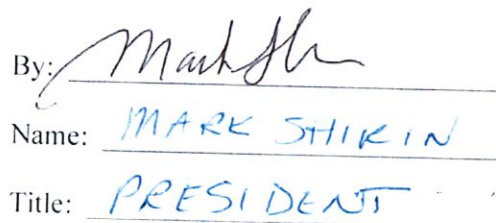 By: Mark
Name: MARK SHIKIN
Title: PRESIDENT